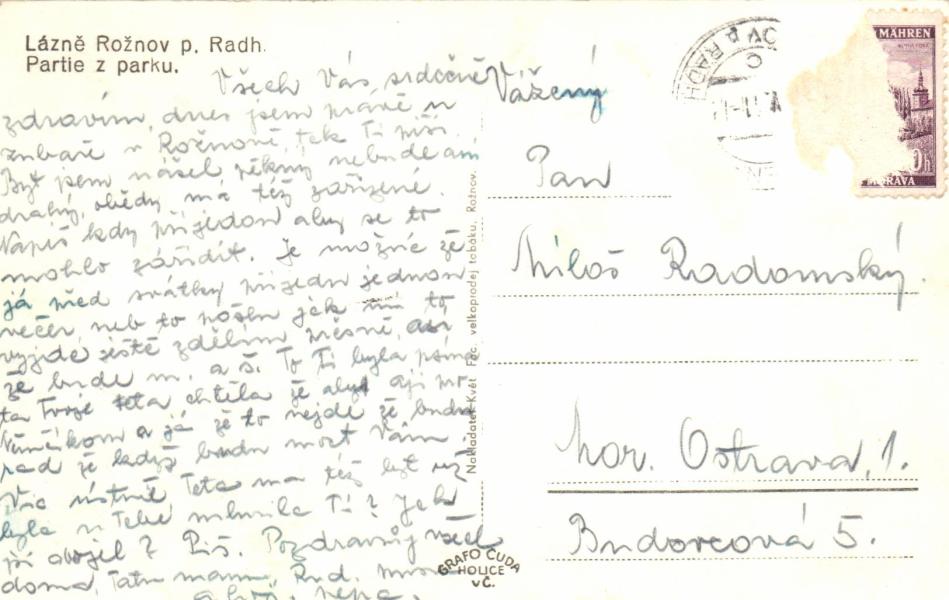 Lázně Rožnov p. Radh.
Partie z parku.
Všech Vás srdečně
zdravím, dnes jsem právě u
zubaře v Rožnově, tak Ti píši.
Byt jsem našel pěkný nebude ani
drahý, obědy má též zařízené.
Napiš kdy přijedou aby se to
mohlo zařídit. Je možné že
já před svátky přijedu jednou
večer, neb to pošlu jak to
vyjde ještě zdělím přesně, asi
že bude m. a š. To Ti byla
ta Tvoje teta chtěla že
a já že to nejde že budu
rad že když budu moct Vám.
Víc ústně Teta má též být
byla u Tebe mluvila Ti? Jak
Piš. Pozdravuj všech
doma, Tatu mamu, Rud.
Nakladatel Květ Foc. velkoprodej tabáku, Rožnov.
GRAFO ČUDA
HOLICE
v Č.
Vážený
Pan
Miloš Radomský.
Mor. Ostrava, 1.
Budovcová 5.
MÄHREN
MORAVA